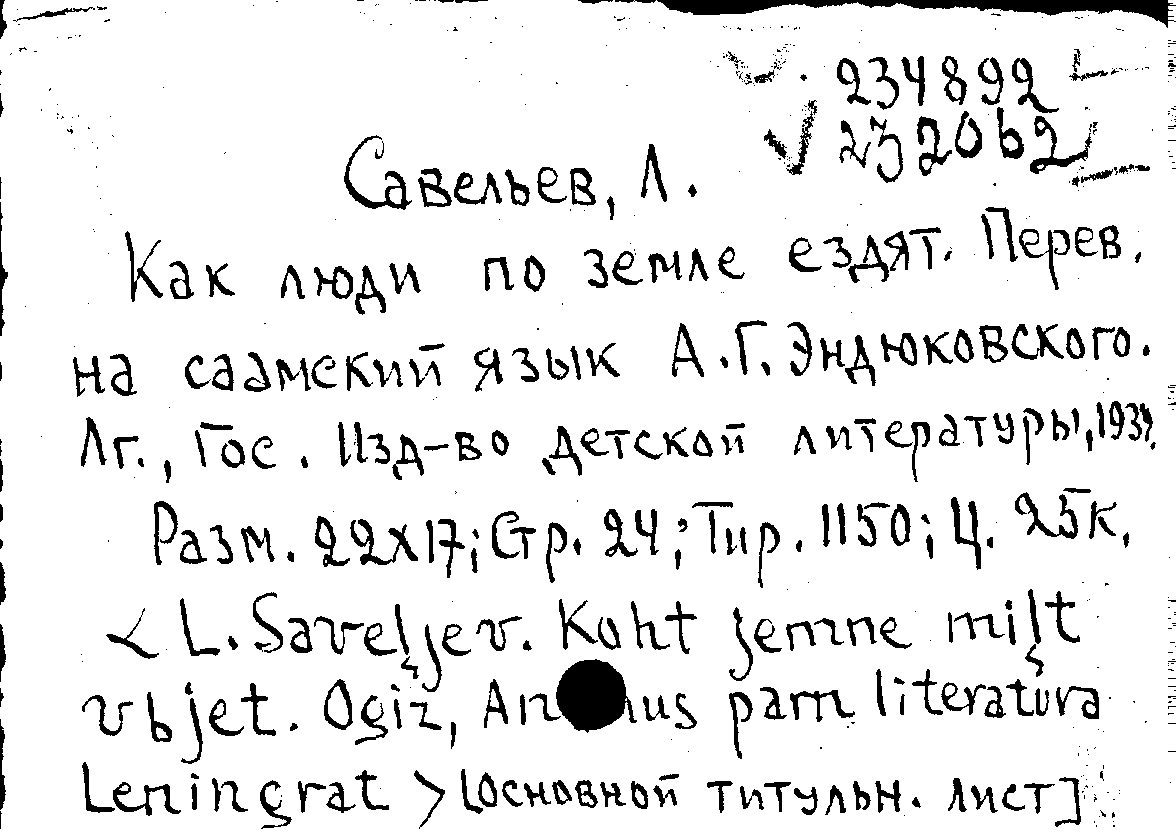 234892
232062
Савельев, Л.
Как люди по земле ездят. Перев.
на саамский язык А.Г. Эндюковского.
Лг., Гос. Изд-во детской литературы,
Разм. 22х17; Стр. 24; Тир. 1150; Ц. 25к.
< L. Saveļjev. Koht jemne miļt
vьjet. Ogiz, parn literatura
Leningrat > [Основной титульн. лист]